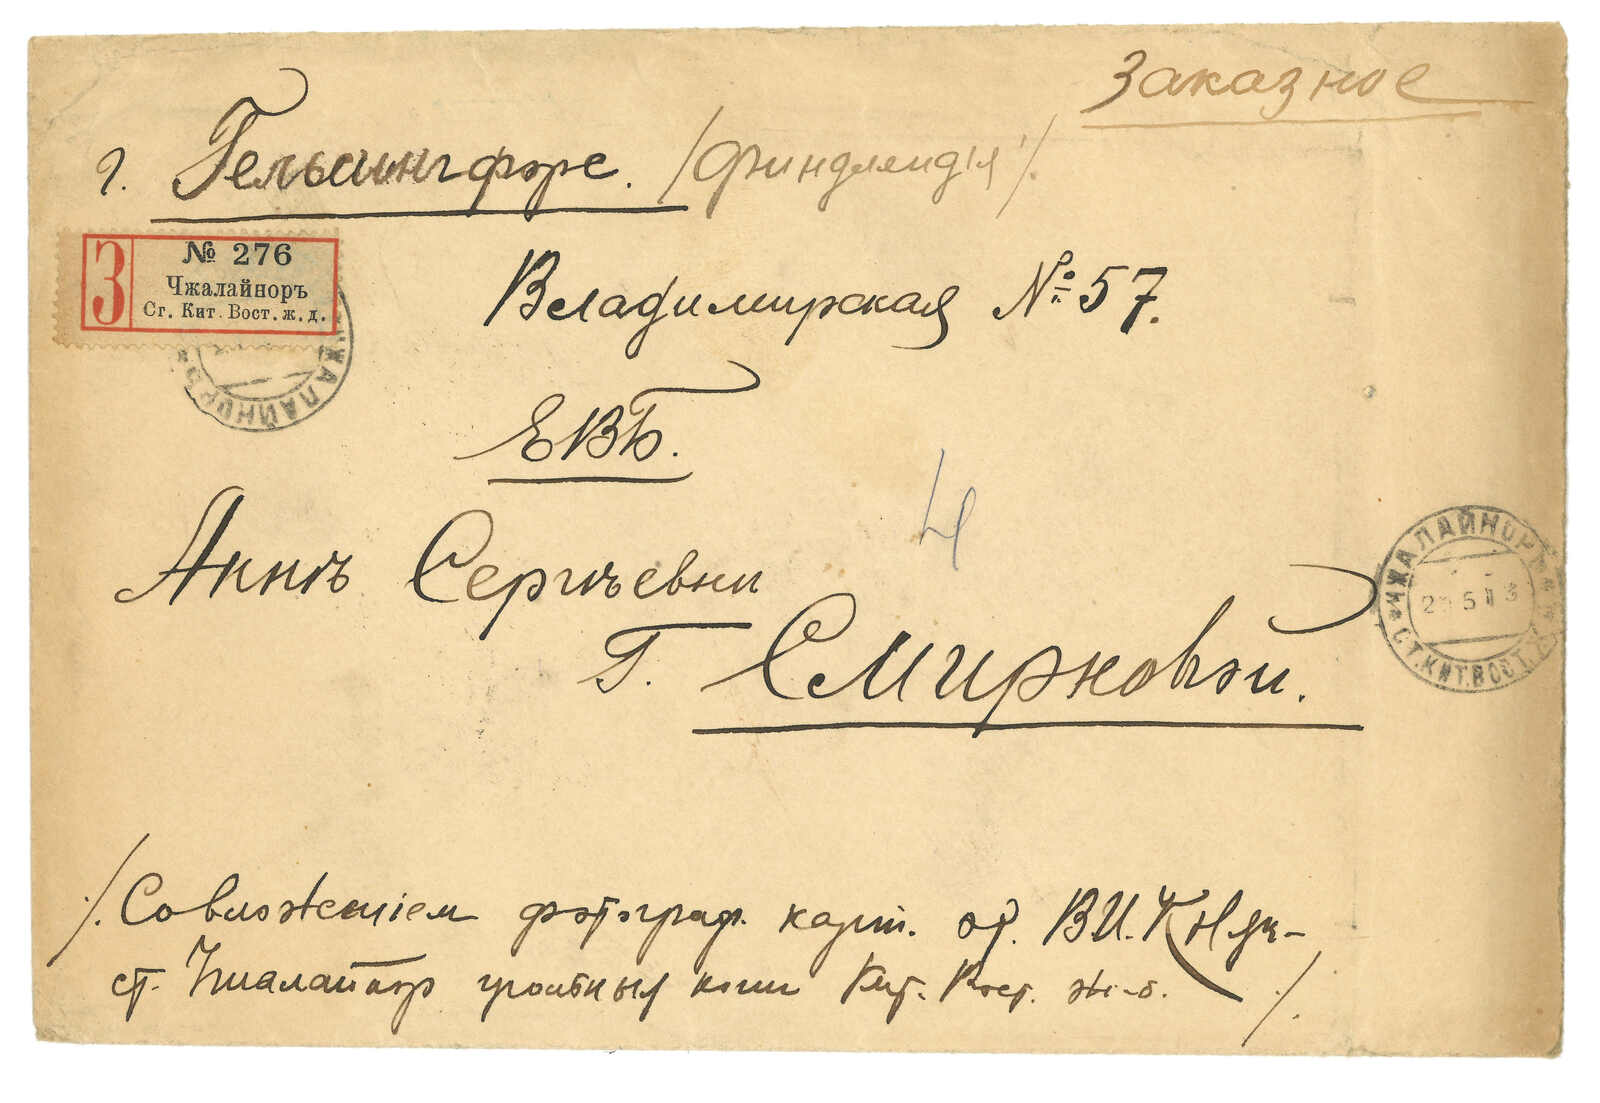 Заказное
г. Гельсингфорс. /Финляндія/.
З
№ 276
Чжалайноръ
Ст. Кит. Вост. ж. д.
ЧЖАЛАЙНОРЪ
Владимирская № 57.
ЕВБ.
4
Аннѣ Сергѣевни
Г. Смирновой.
ЧЖАЛАЙНОРЪ
СТ. КИТ. ВОСТ.
/. Со вложеніем фотограф. карт. от В.И.
ст. Чжалайнор Кит. Вост. ж-д. /.